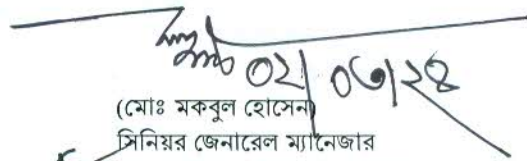 ০২/০৬/২৪
(মোঃ মকবুল হোসেন)
সিনিয়র জেনারেল ম্যানেজার